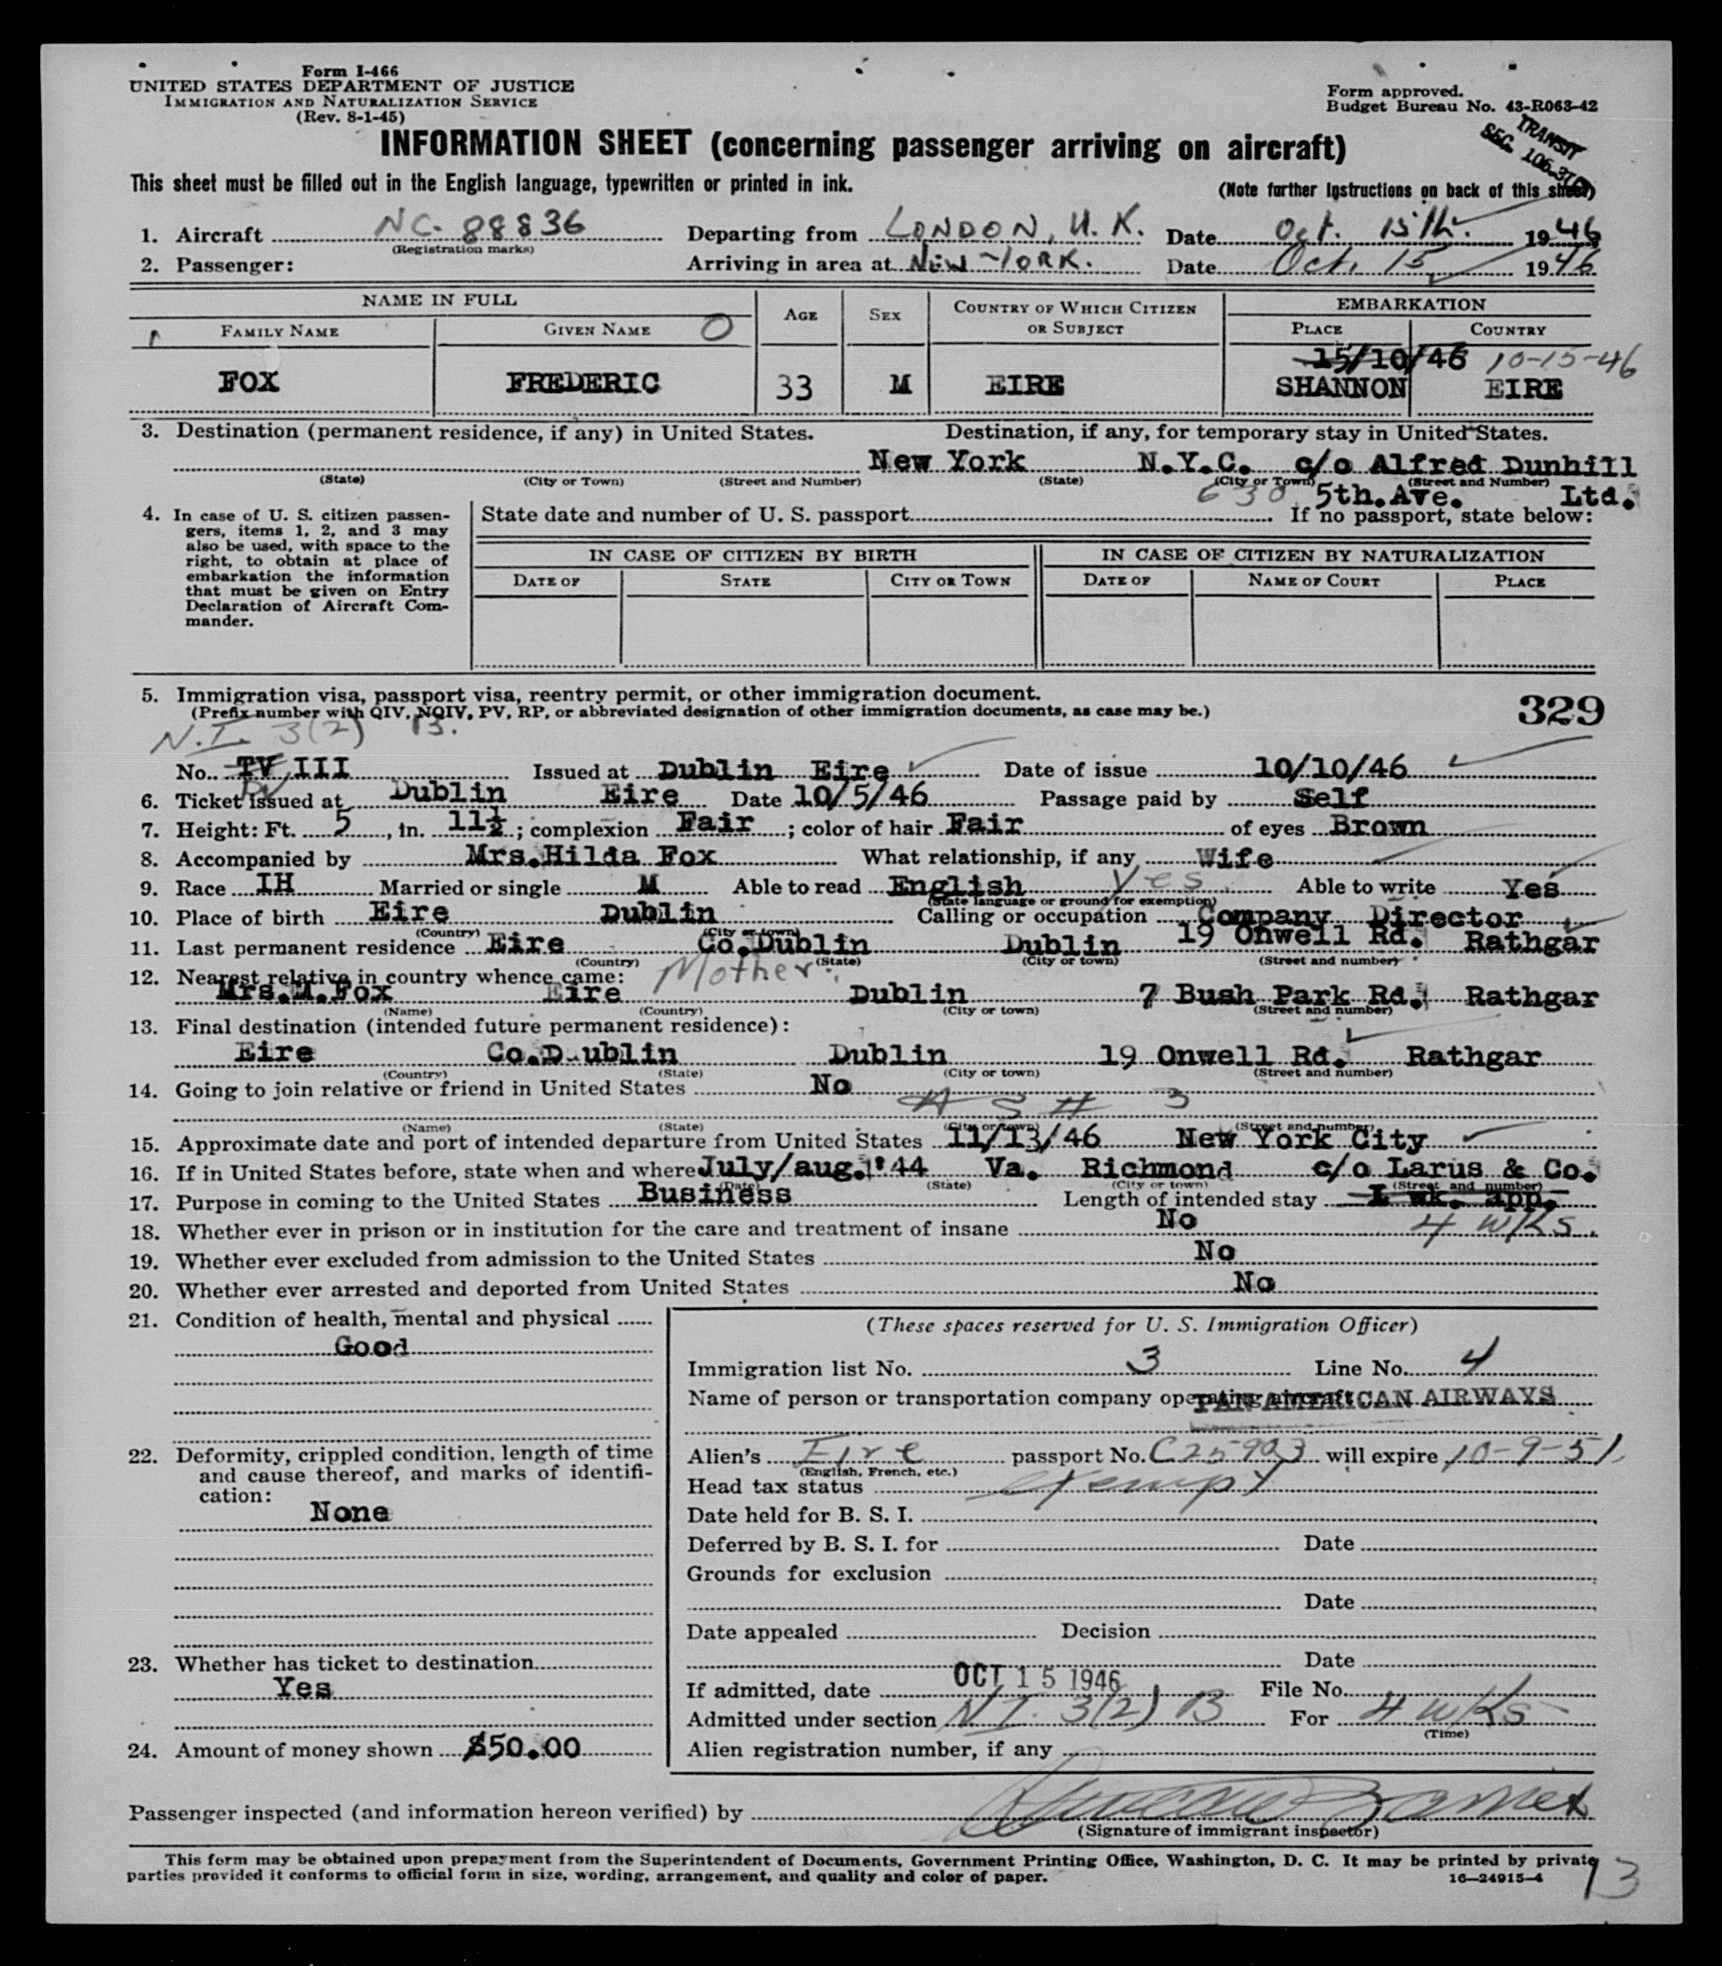 Form I-466
UNITED STATES DEPARTMENT OF JUSTICE
IMMIGRATION AND NATURALIZATION SERVICE
(Rev. 8-1-45)
Form approved.
Budget Bureau No. 43-R063-42
TRANSIT
SEC. 106-3
INFORMATION SHEET (concerning passenger arriving on aircraft)
This sheet must be filled out in the English language, typewritten or printed in ink.
(Note further instructions on back of this sheet)
1. Aircraft NC. 88836 Departing from LONDON, U.K. Date Oct. 15th. 1946
(Registration marks)
2. Passenger: Arriving in area at NEW YORK. Date Oct. 15 1946
NAME IN FULL AGE SEX COUNTRY OF WHICH CITIZEN OR SUBJECT EMBARKATION
FAMILY NAME GIVEN NAME O PLACE COUNTRY
15/10/46 10-15-46
FOX FREDERIC 33 M EIRE SHANNON EIRE
3. Destination (permanent residence, if any) in United States. Destination, if any, for temporary stay in United States.
New York N.Y.C. c/o Alfred Dunhill
(State) (City or Town) (Street and Number) (State) (City or Town) (Street and Number)
630 5th.Ave. Ltd.
4. In case of U. S. citizen passen-
gers, items 1, 2, and 3 may
also be used, with space to the
right, to obtain at place of
embarkation the information
that must be given on Entry
Declaration of Aircraft Com-
mander.
State date and number of U. S. passport If no passport, state below:
IN CASE OF CITIZEN BY BIRTH IN CASE OF CITIZEN BY NATURALIZATION
DATE OF STATE CITY OR TOWN DATE OF NAME OF COURT PLACE
5. Immigration visa, passport visa, reentry permit, or other immigration document.
(Prefix number with QIV, NQIV, PV, RP, or abbreviated designation of other immigration documents, as case may be.)
329
N.I. 3(2) B.
No. TV III Issued at Dublin Eire Date of issue 10/10/46
PV
6. Ticket issued at Dublin Eire Date 10/5/46 Passage paid by Self
7. Height: Ft. 5, in. 11½; complexion Fair; color of hair Fair of eyes Brown
8. Accompanied by Mrs.Hilda Fox What relationship, if any Wife
9. Race IH Married or single M Able to read English Yes Able to write Yes
(State language or ground for exemption)
10. Place of birth Eire Dublin Calling or occupation Company Director
(Country) (City or town)
11. Last permanent residence Eire Co.Dublin Dublin 19 Onwell Rd. Rathgar
(Country) (State) (City or town) (Street and number)
12. Nearest relative in country whence came: Mother.
Mrs.M.Fox Eire Dublin 7 Bush Park Rd. Rathgar
(Name) (Country) (City or town) (Street and number)
13. Final destination (intended future permanent residence):
Eire Co.D ublin Dublin 19 Onwell Rd. Rathgar
(Country) (State) (City or town) (Street and number)
14. Going to join relative or friend in United States No
(Name) (State) (City or town) (Street and number)
15. Approximate date and port of intended departure from United States 11/13/46 New York City
16. If in United States before, state when and where July/aug.'44 Va. Richmond c/o Larus & Co.
(Date) (State) (City or town) (Street and number)
17. Purpose in coming to the United States Business Length of intended stay 1 wk. app.
18. Whether ever in prison or in institution for the care and treatment of insane No 4 wks.
19. Whether ever excluded from admission to the United States No
20. Whether ever arrested and deported from United States No
21. Condition of health, mental and physical
Good
22. Deformity, crippled condition, length of time
and cause thereof, and marks of identifi-
cation:
None
23. Whether has ticket to destination
Yes
24. Amount of money shown $50.00
(These spaces reserved for U. S. Immigration Officer)
Immigration list No. 3 Line No. 4
Name of person or transportation company operating aircraft PAN AMERICAN AIRWAYS
Alien's Eire passport No. C25903 will expire 10-9-51
(English, French, etc.)
Head tax status exempt
Date held for B. S. I.
Deferred by B. S. I. for Date
Grounds for exclusion
Date
Date appealed Decision
Date
If admitted, date OCT 15 1946 File No.
Admitted under section N.I. 3(2) B For 4 wks
(Time)
Alien registration number, if any
Passenger inspected (and information hereon verified) by
(Signature of immigrant inspector)
This form may be obtained upon prepayment from the Superintendent of Documents, Government Printing Office, Washington, D. C. It may be printed by private
parties provided it conforms to official form in size, wording, arrangement, and quality and color of paper.
16—24915-4
13